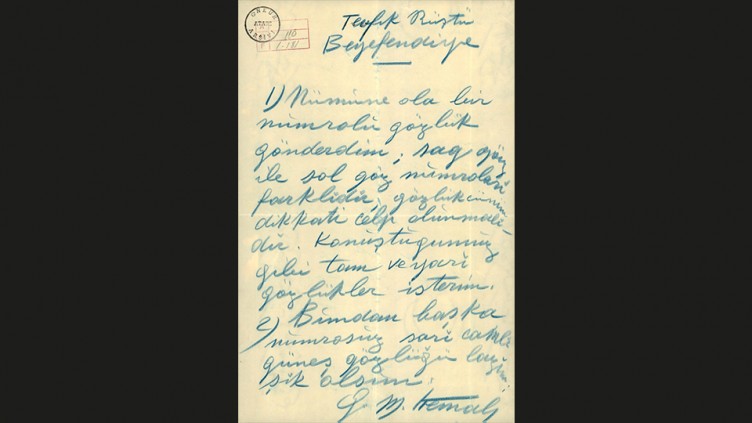 Tevfik Rüştü
Beyefendiye
1) Nümüne ola bir
nümrolü gözlük
gönderdim; sag göz
ile sol göz nümrolari
farklidir, gözlükçünün
dikkati celp olünmali-
dir. Konüştügümüz
gibi tam ve yari
gözlükler isterim.
2) Bündan başka
nümrosüz sari camli
güneş gözlüğü lazim;
şik olsün.
G. M. Kemal